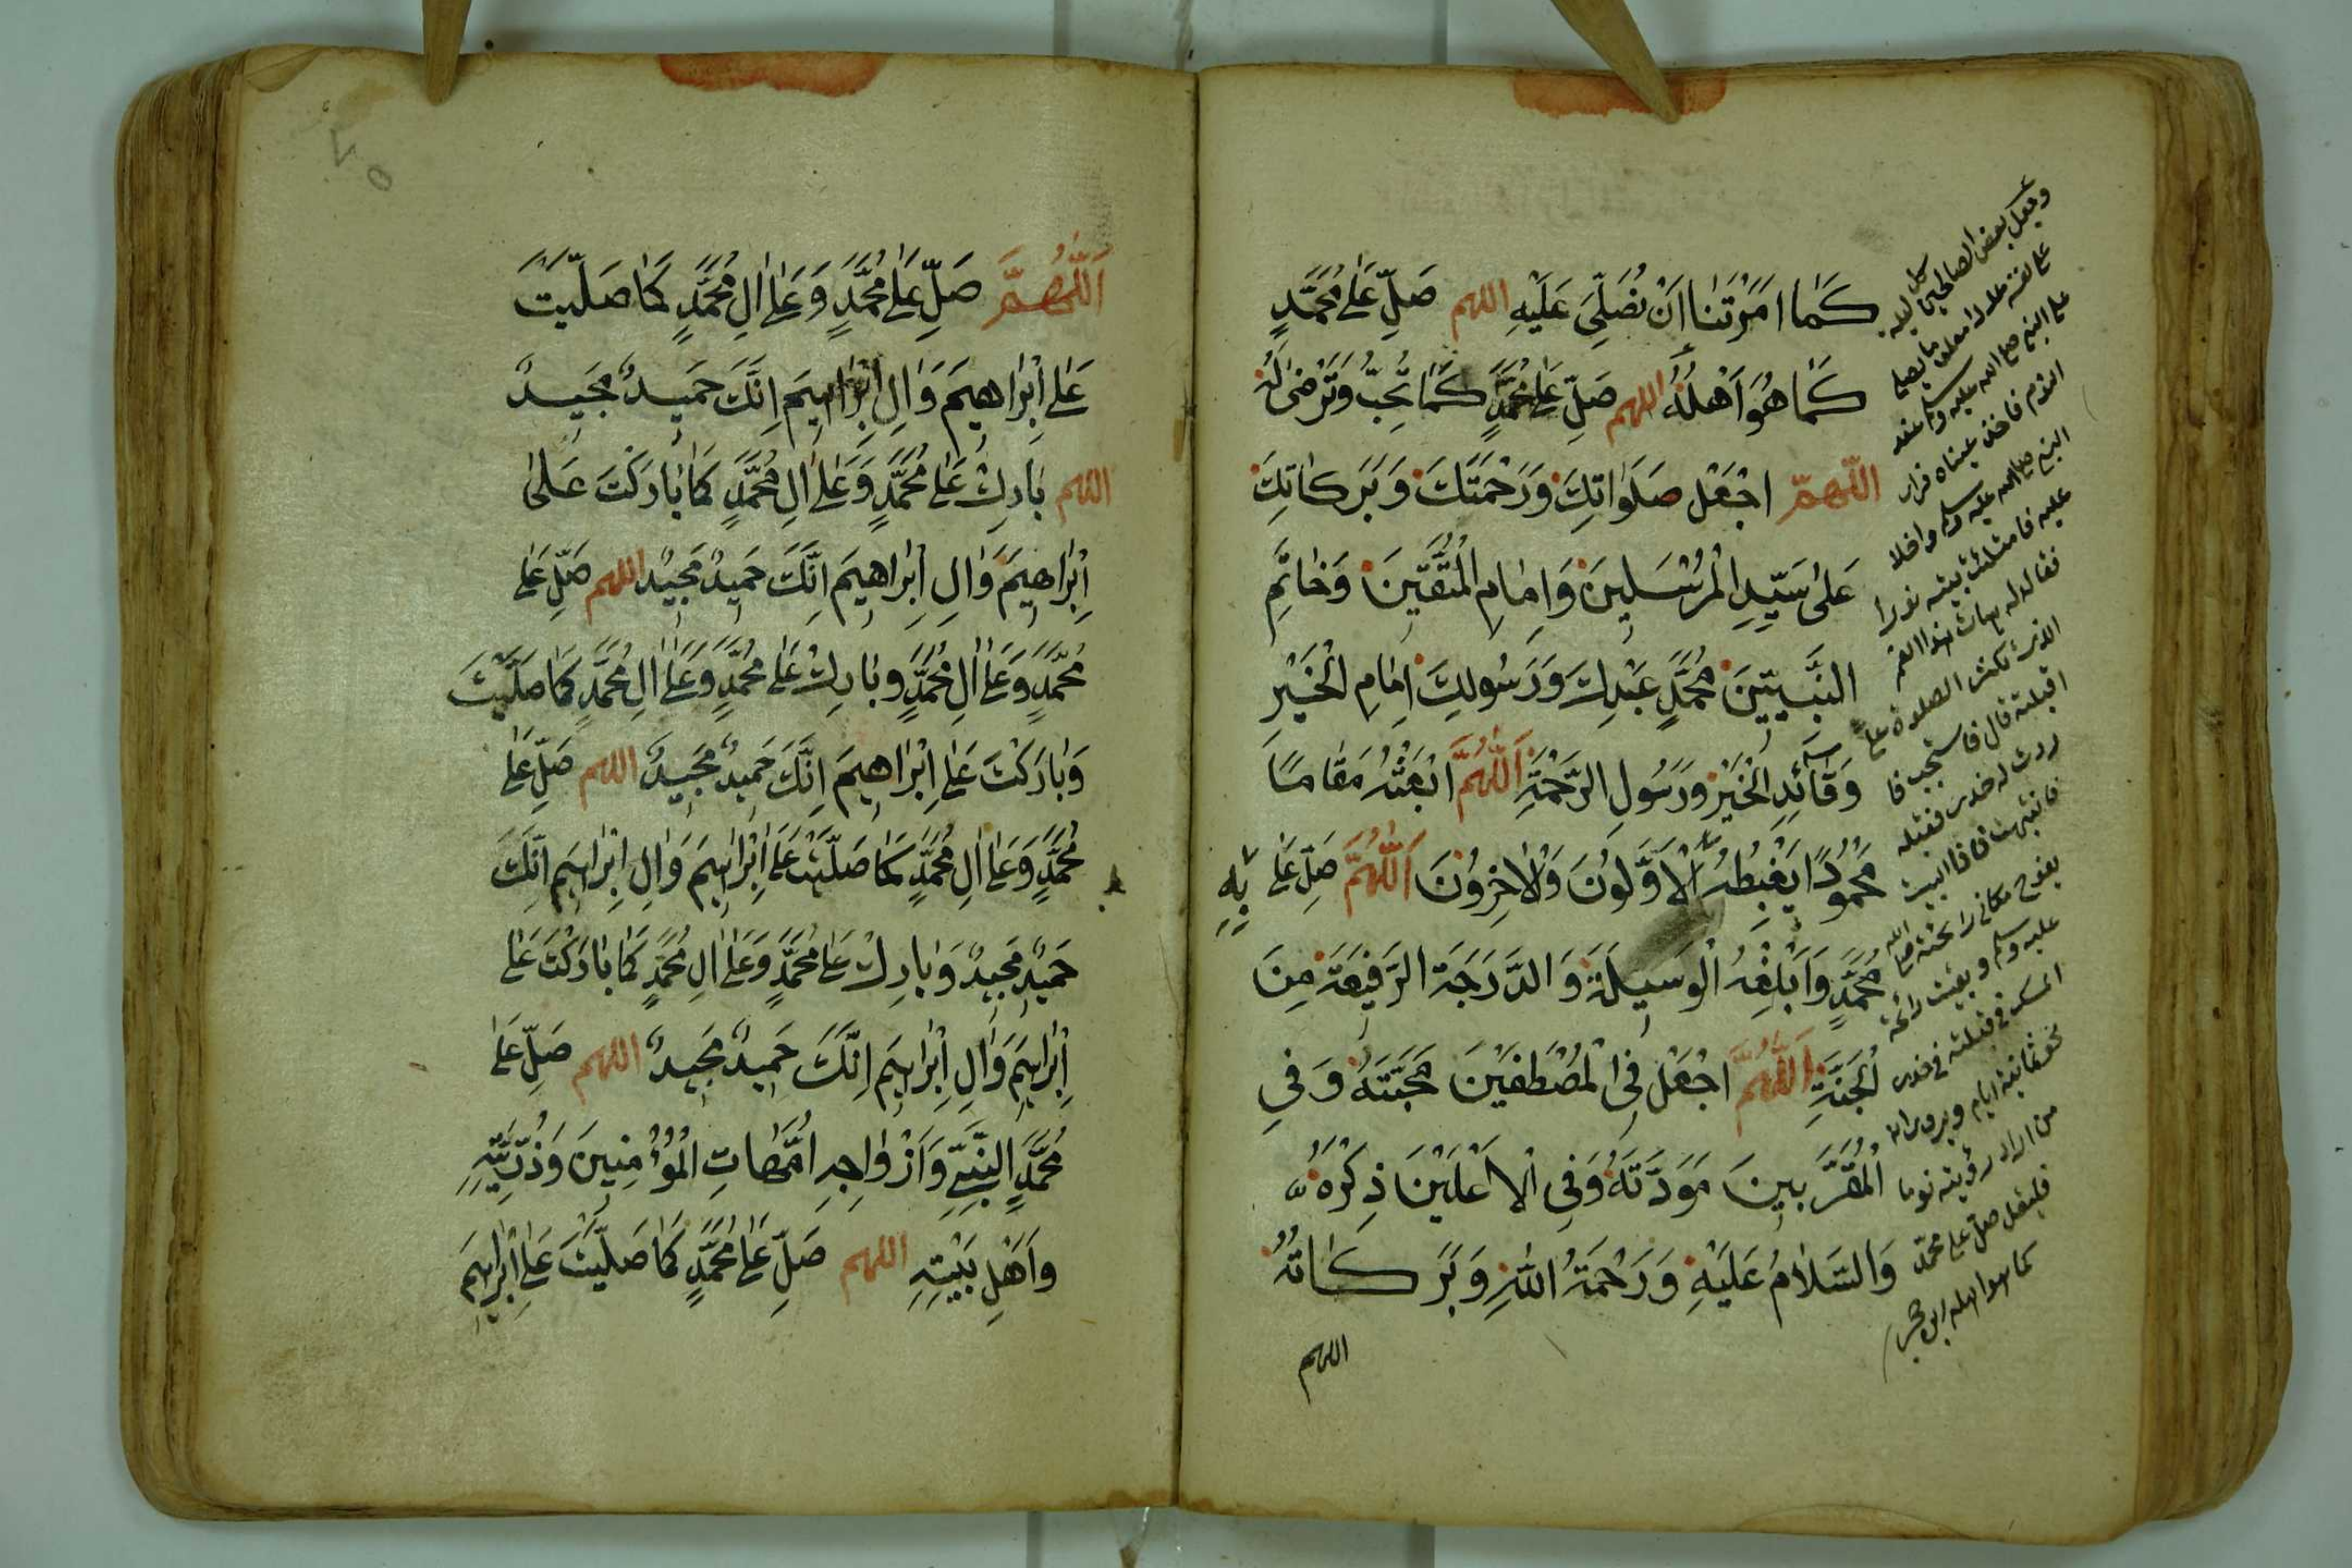 كَمَا اَمَرْتَنَا اَنْ نُصَلِّيَ عَلَيْهِ اللهم صَلِّ عَلٰى مُحَمَّدٍ
كَمَا هُوَ اَهْلُهُ اللهم صَلِّ عَلٰى مُحَمَّدٍ كَمَا تُحِبُّ وَتَرْضٰى لَهُ
اللّٰهمّ اجْعَلْ صَلَوَاتِكَ وَرَحْمَتَكَ وَبَرَكَاتِكَ
عَلٰى سَيِّدِ الْمُرْسَلِينَ وَاِمَامِ الْمُتَّقِينَ وَخَاتَمِ
النَّبِيِّينَ مُحَمَّدٍ عَبْدِكَ وَرَسُولِكَ اِمَامِ الْخَيْرِ
وَقَائِدِ الْخَيْرِ وَرَسُولِ الرَّحْمَةِ اَللّٰهُمَّ ابْعَثْهُ مَقَامًا
مَحْمُودًا يَغْبِطُهُ الْاَوَّلُونَ وَالْاٰخِرُونَ اَللّٰهُمَّ صَلِّ عَلٰى
بِهِ
مُحَمَّدٍ وَاَبْلِغْهُ الْوَسِيلَةَ وَالدَّرَجَةَ الرَّفِيعَةَ مِنَ
الْجَنَّةِ اَللّٰهُمَّ اجْعَلْ فِى الْمُصْطَفَيْنَ مَحَبَّتَهُ وَفِى
الْمُقَرَّبِينَ مَوَدَّتَهُ وَفِى الْاَعْلَيْنَ ذِكْرَهُ
وَالسَّلَامُ عَلَيْهِ وَرَحْمَةُ اللّٰهِ وَبَرَكَاتُهُ
اللهم
بعض الصالحين
على نفسه
على النبى صلى الله عليه وسلم عند
النوم فاخذ عيناه فراى
النبى صلى الله عليه وسلم داخلا
عليه فامتلئت بيته نورا
فقال له هات هذا الفم
الذى يكثر الصلوة على
اقبلته قال فاستحيت فا
درت له خدى فقبله
فانتبهت فاذا البيت
يفوح مكانى رائحته صلى الله
عليه وسلم وبقيت رائحة
المسك فى قبلته فى خدى
نحو ثمانية ايام ويروى انه
من اراد رؤيته نوما
فليقل صل على محمد
كما هو اهله ابن حجر
اَللّٰهُمَّ صَلِّ عَلٰى مُحَمَّدٍ وَعَلٰى اٰلِ مُحَمَّدٍ كَمَا صَلَّيْتَ
عَلٰى اِبْرَاهِيمَ وَاٰلِ اِبْرَاهِيمَ اِنَّكَ حَمِيدٌ مَجِيدٌ
اللهم بَارِكْ عَلٰى مُحَمَّدٍ وَعَلٰى اٰلِ مُحَمَّدٍ كَمَا بَارَكْتَ عَلٰى
اِبْرَاهِيمَ وَاٰلِ اِبْرَاهِيمَ اِنَّكَ حَمِيدٌ مَجِيدٌ اللهم صَلِّ عَلٰى
مُحَمَّدٍ وَعَلٰى اٰلِ مُحَمَّدٍ وبَارِكْ عَلٰى مُحَمَّدٍ وَعَلٰى اٰلِ مُحَمَّدٍ كَمَا صَلَّيْتَ
وَبَارَكْتَ عَلٰى اِبْرَاهِيمَ اِنَّكَ حَمِيدٌ مَجِيدٌ اللهم صَلِّ عَلٰى
مُحَمَّدٍ وَعَلٰى اٰلِ مُحَمَّدٍ كَمَا صَلَّيْتَ عَلٰى اِبْرَاهِيمَ وَاٰلِ اِبْرَاهِيمَ اِنَّكَ
حَمِيدٌ مَجِيدٌ وَبَارِكْ عَلٰى مُحَمَّدٍ وَعَلٰى اٰلِ مُحَمَّدٍ كَمَا بَارَكْتَ عَلٰى
اِبْرَاهِيمَ وَاٰلِ اِبْرَاهِيمَ اِنَّكَ حَمِيدٌ مَجِيدٌ اللهم صَلِّ عَلٰى
مُحَمَّدٍ النَّبِيِّ وَاَزْوَاجِهِ اُمَّهَاتِ الْمُؤْمِنِينَ وَذُرِّيَّتِهِ
وَاَهْلِ بَيْتِهِ اللهم صَلِّ عَلٰى مُحَمَّدٍ كَمَا صَلَّيْتَ عَلٰى اِبْرَاهِيمَ